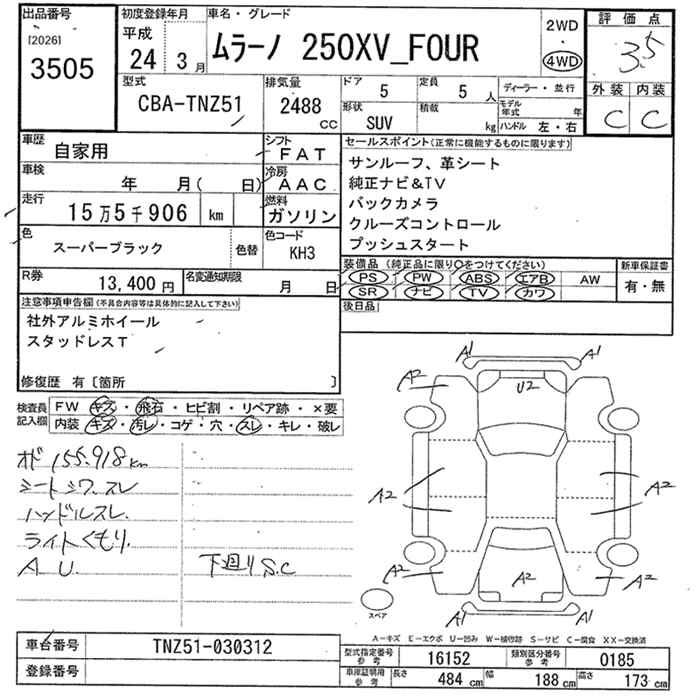 出品番号
[2026]
3505
初度登録年月
平成
24 3月
車名・グレード
ムラーノ 250XV_FOUR
2WD
4WD
評価点
3.5
外装 内装
C C
型式
CBA-TNZ51
排気量
2488
CC
ドア 5
定員 5 人
形状
SUV
積載
kg
ディーラー・並行
モデル年式 年
ハンドル 左・右
車歴
自家用
シフト
FAT
車検
年 月( 日)
冷房
AAC
走行
15万5千906 km
燃料
ガソリン
色
スーパーブラック
色替
色コード
KH3
R券
13,400円
名変通知期限
月 日
セールスポイント(正常に機能するものに限ります)
サンルーフ、革シート
純正ナビ&TV
バックカメラ
クルーズコントロール
プッシュスタート
装備品(純正品に限り○をつけてください)
PS PW ABS エアB AW
SR ナビ TV カワ
新車保証書
有・無
後日品
注意事項申告欄(不具合内容等は具体的に記入して下さい)
社外アルミホイール
スタッドレスT
修復歴 有〔箇所 〕
検査員記入欄
FW キズ・飛石・ヒビ割・リペア跡・×要
内装 キズ・汚レ・コゲ・穴・スレ・キレ・破レ
オド 155.918km
シートシワ.スレ
ハンドルスレ.
ライトくもり.
A U. 下廻りS.C
A1 A1
A2 U2 A2
A2 A2
A2 A2 A2
A1 A1
スペア
A-キズ E-エクボ U-凹み W-補修跡 S-サビ C-腐食 XX-交換済
車台番号 TNZ51-030312
登録番号
型式指定番号参考 16152
類別区分番号参考 0185
車庫証明用参考
長さ 484 cm
幅 188 cm
高さ 173 cm